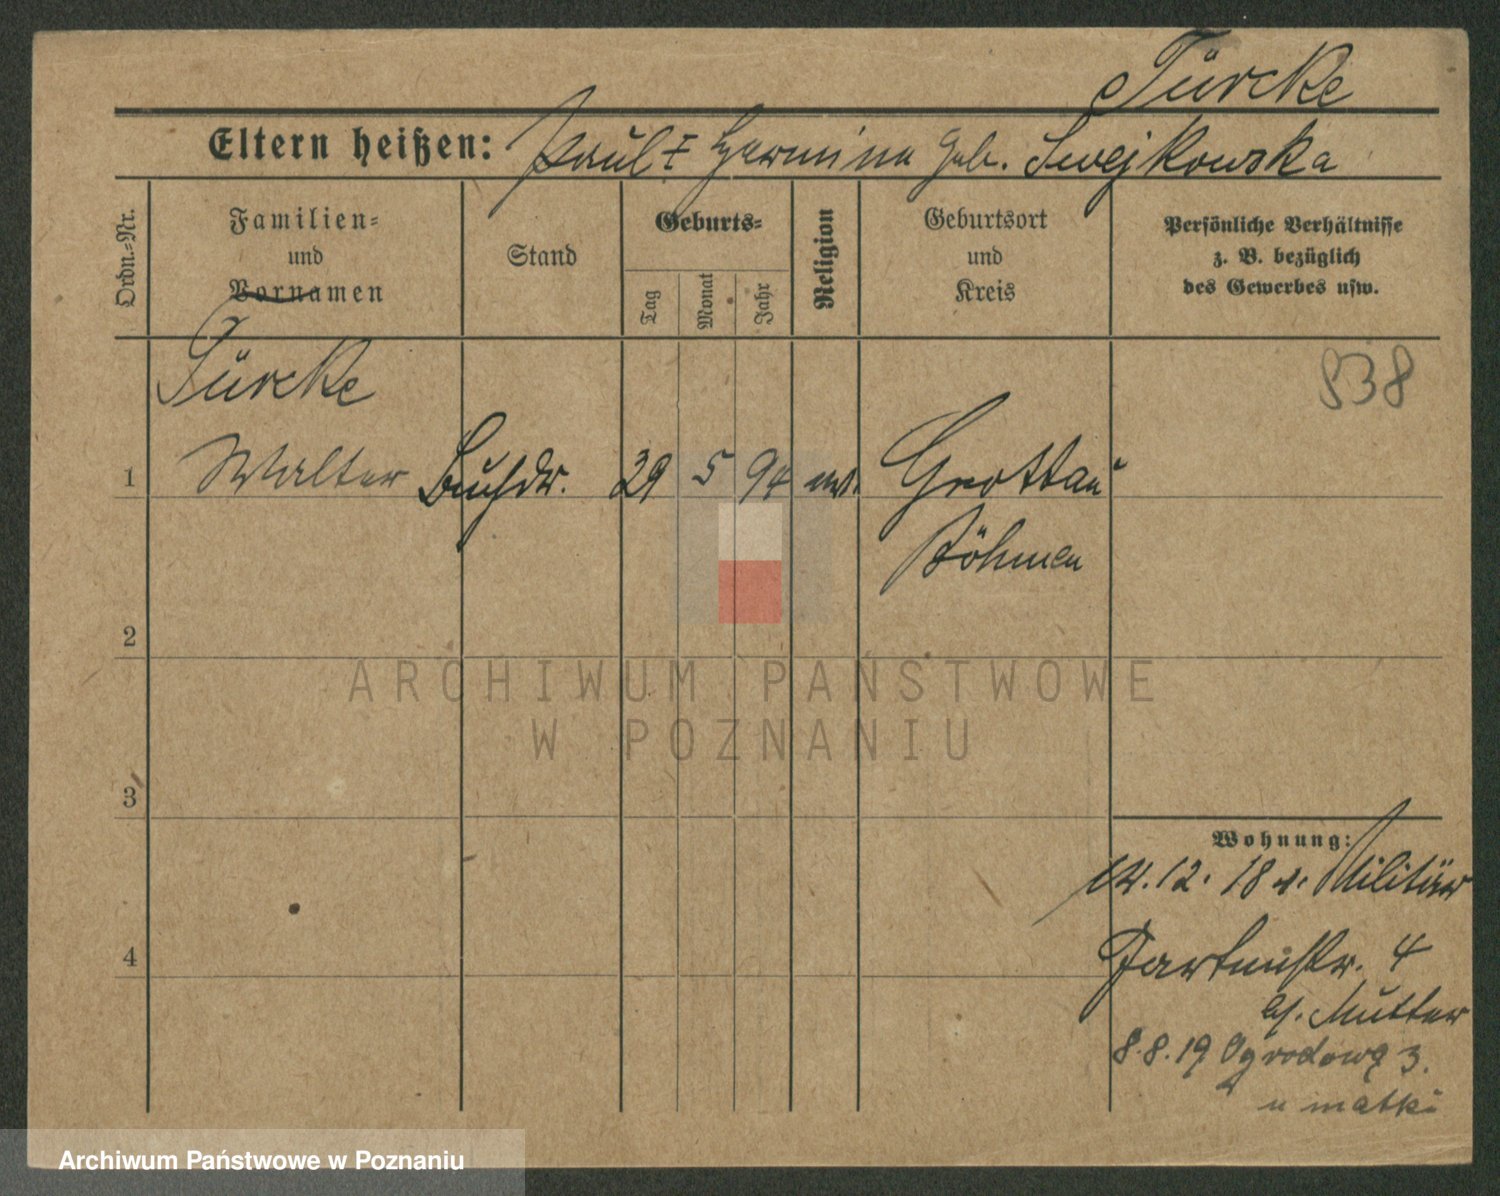 Türcke
Eltern heißen: Paul † Hermina geb. Swejkowska
Ordn.-Nr.
Familien-
und
Vornamen
Stand
Geburts-
Tag
Monat
Jahr
Religion
Geburtsort
und
Kreis
Persönliche Verhältnisse
z. B. bezüglich
des Gewerbes usw.
838
Türcke
1 Walter Buchdr. 29 5 94 ev. Grottau
Böhmen
2
ARCHIWUM PAŃSTWOWE
W POZNANIU
3
Wohnung:
14.12.18 v. Militär
4
Gartenstr. 4
bei Mutter
8.8.19 Ogrodowa 3.
u matki
Archiwum Państwowe w Poznaniu